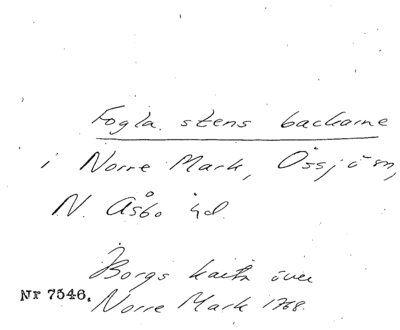 Fogla stens backarne
i Norre Mark, Össjö sn,
N. Åsbo hd.
Borgs karta över
Norre Mark 1768.
Nr 7546.